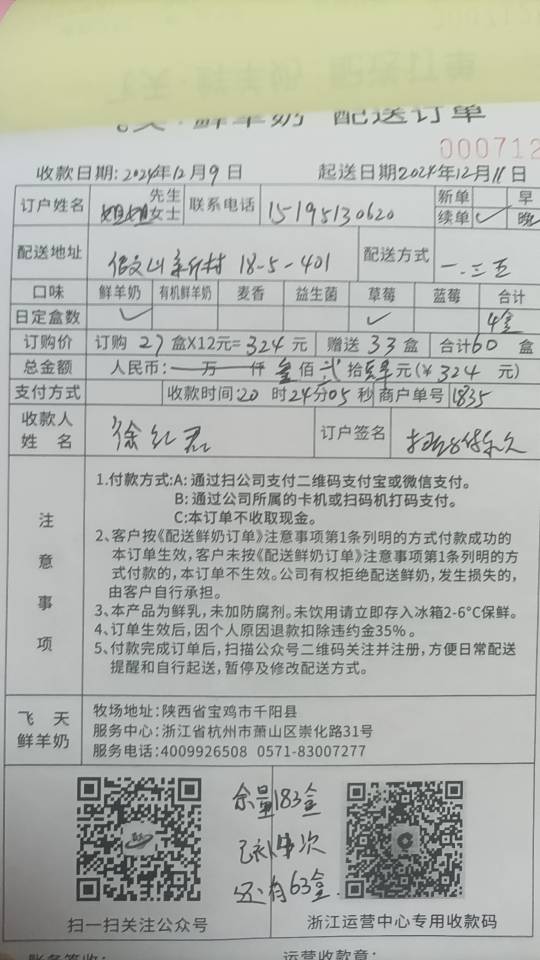 鲜羊奶 配送订单
000712
收款日期:2024年12月9日 起送日期2024年12月11日
订户姓名 姐姐 先生 女士 联系电话 15195130620 新单 早
续单 ✓ 晚
配送地址 18-5-401 配送方式 一.三五
口味 鲜羊奶 有机鲜羊奶 麦香 益生菌 草莓 蓝莓 合计
日定盒数 ✓ ✓ 4盒
订购价 订购27盒X12元=324元 赠送33盒 合计60盒
总金额 人民币: 万 仟 叁佰贰拾肆元(¥324 元)
支付方式 收款时间:20时24分05秒 商户单号 1835
收款人姓名 徐红君 订户签名
注意事项
1.付款方式:A: 通过扫公司支付二维码支付宝或微信支付。
B: 通过公司所属的卡机或扫码机打码支付。
C:本订单不收取现金。
2、客户按《配送鲜奶订单》注意事项第1条列明的方式付款成功的
本订单生效,客户未按《配送鲜奶订单》注意事项第1条列明的方
式付款的,本订单不生效。公司有权拒绝配送鲜奶,发生损失的,
由客户自行承担。
3、本产品为鲜乳,未加防腐剂。未饮用请立即存入冰箱2-6°C保鲜。
4、订单生效后,因个人原因退款扣除违约金35%。
5、付款完成订单后,扫描公众号二维码关注并注册,方便日常配送
提醒和自行起送,暂停及修改配送方式。
飞天
鲜羊奶
牧场地址:陕西省宝鸡市千阳县
服务中心:浙江省杭州市萧山区崇化路31号
服务电话:4009926508 0571-83007277
余量183盒
还有63盒
扫一扫关注公众号 浙江运营中心专用收款码
运营收款章: